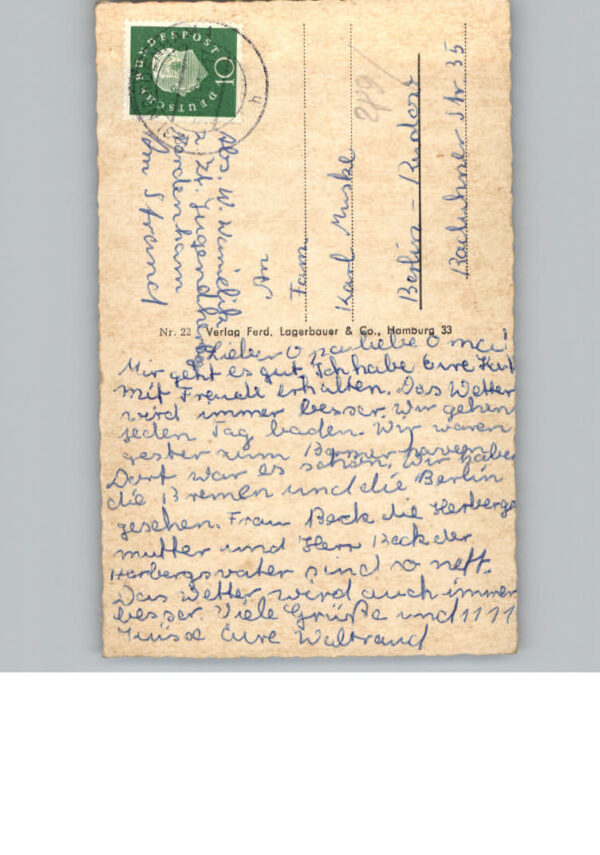 DEUTSCHE BUNDESPOST
10
Abs. W.
z. Zt. Jugendherberge
Nordenham
Am Strand
An
Fam.
Karl Muske
Berlin – Rudow
Str. 35
219
Nr. 22 Verlag Ferd. Lagerbauer & Co., Hamburg 33
Lieber Opa liebe Omai!
Mir geht es gut. Ich habe Eure Kart
mit Freude erhalten. Das Wetter
wird immer besser. Wir gehen
jeden Tag baden. Wir waren
gester zum
Dort war es schön. Wir habe
die Bremen und die Berlin
gesehen. Frau Beck die Herbergs
mutter und Herr Beck der
Herbergsvater sind so nett.
Das Wetter wird auch immer
besser. Viele Grüße und 1111
Küsse Eure Waltraud